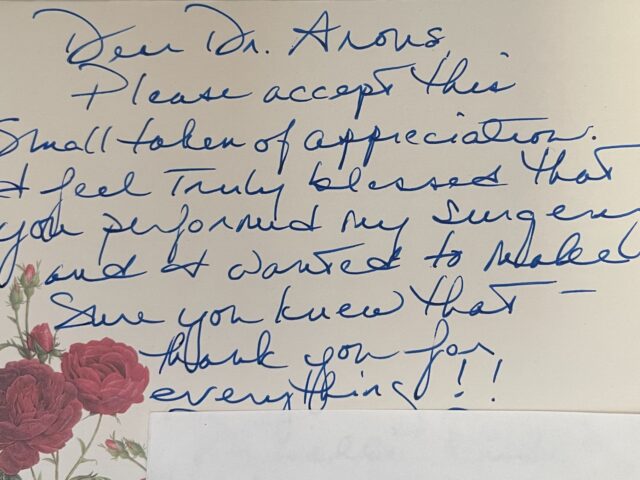 Dear Dr. Arous,
Please accept this
small token of appreciation.
I feel Truly blessed that
you performed my surgery
and I wanted to make
sure you knew that –
thank you for
everything!!